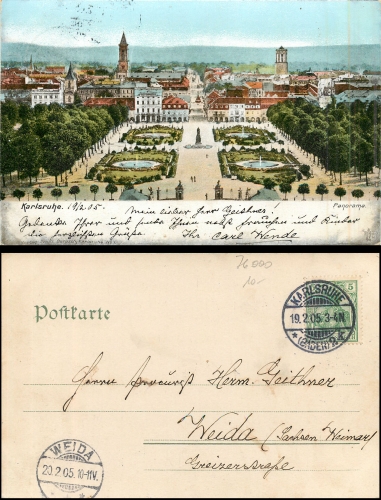 Karlsruhe. 19/2.05.
Panorama.
Mein lieber Herr Geithner!
Gedenke Ihrer und sende Ihnen nebst Frauchen und Kinder
die herzlichsten Grüße. Ihr Carl Wende
76000
10.-
Postkarte
5
KARLSRUHE
19.2.05.3-4N
(BADEN)
Herrn Procurist Herm. Geithner
Weida (Sachsen Weimar)
Greizerstraße.
WEIDA
20.2.05.10-11V.